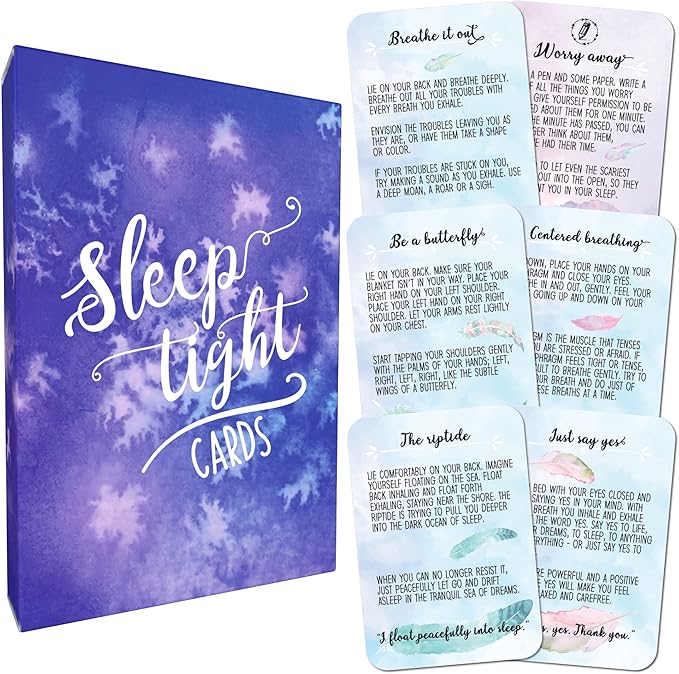 Sleep
tight
CARDS
Breathe it out
LIE ON YOUR BACK AND BREATHE DEEPLY.
BREATHE OUT ALL YOUR TROUBLES WITH
EVERY BREATH YOU EXHALE.
ENVISION THE TROUBLES LEAVING YOU AS
THEY ARE, OR HAVE THEM TAKE A SHAPE
OR COLOR.
IF YOUR TROUBLES ARE STUCK ON YOU,
TRY MAKING A SOUND AS YOU EXHALE. USE
A DEEP MOAN, A ROAR OR A SIGH.
Worry away
A PEN AND SOME PAPER. WRITE A
OF ALL THE THINGS YOU WORRY
GIVE YOURSELF PERMISSION TO BE
ABOUT THEM FOR ONE MINUTE.
MINUTE HAS PASSED, YOU CAN
THINK ABOUT THEM,
HAD THEIR TIME.
TO LET EVEN THE SCARIEST
OUT INTO THE OPEN, SO THEY
YOU IN YOUR SLEEP.
Be a butterfly
LIE ON YOUR BACK. MAKE SURE YOUR
BLANKET ISN'T IN YOUR WAY. PLACE YOUR
RIGHT HAND ON YOUR LEFT SHOULDER.
PLACE YOUR LEFT HAND ON YOUR RIGHT
SHOULDER. LET YOUR ARMS REST LIGHTLY
ON YOUR CHEST.
START TAPPING YOUR SHOULDERS GENTLY
WITH THE PALMS OF YOUR HANDS; LEFT,
RIGHT, LEFT, RIGHT, LIKE THE SUBTLE
WINGS OF A BUTTERFLY.
Centered breathing
DOWN, PLACE YOUR HANDS ON YOUR
AND CLOSE YOUR EYES.
IN AND OUT, GENTLY. FEEL YOUR
GOING UP AND DOWN ON YOUR
IS THE MUSCLE THAT TENSES
ARE STRESSED OR AFRAID. IF
FEELS TIGHT OR TENSE,
TO BREATHE GENTLY. TRY TO
YOUR BREATH AND DO JUST OF
BREATHS AT A TIME.
The riptide
LIE COMFORTABLY ON YOUR BACK. IMAGINE
YOURSELF FLOATING ON THE SEA. FLOAT
BACK INHALING AND FLOAT FORTH
EXHALING, STAYING NEAR THE SHORE. THE
RIPTIDE IS TRYING TO PULL YOU DEEPER
INTO THE DARK OCEAN OF SLEEP.
WHEN YOU CAN NO LONGER RESIST IT,
JUST PEACEFULLY LET GO AND DRIFT
ASLEEP IN THE TRANQUIL SEA OF DREAMS.
"I float peacefully into sleep."
Just say yes
BED WITH YOUR EYES CLOSED AND
SAYING YES IN YOUR MIND. WITH
BREATH YOU INHALE AND EXHALE
THE WORD YES. SAY YES TO LIFE,
DREAMS, TO SLEEP, TO ANYTHING
- OR JUST SAY YES TO
POWERFUL AND A POSITIVE
YES WILL MAKE YOU FEEL
AND CAREFREE.
yes. Thank you."